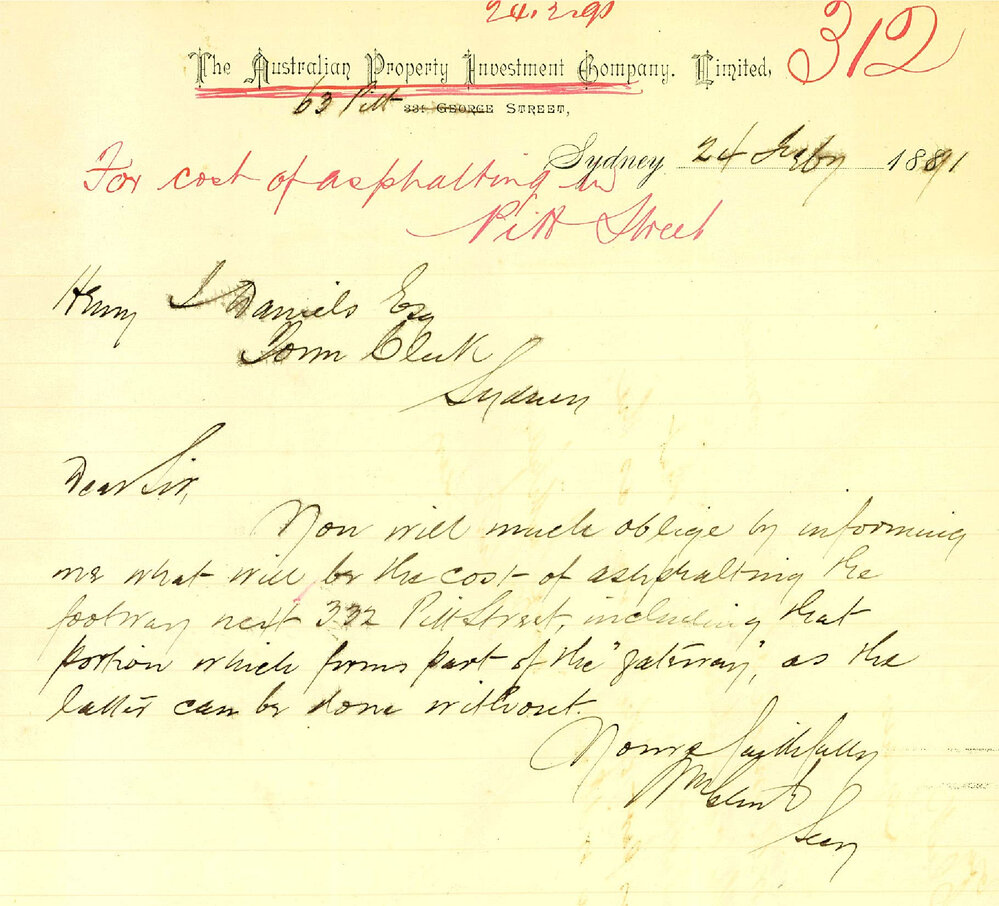 24.2.91
312
The Australian Property Investment Company, Limited,
63 Pitt 339 George Street,
Sydney 24 Feby 1891
For cost of asphalting in
Pitt Street
Henry J Daniels Esq
Town Clerk
Sydney
Dear Sir,
You will much oblige by informing
me what will be the cost of asphalting the
footway next 332 Pitt Street, including that
portion which forms part of the "gateway", as the
latter can be done without.
Yours faithfully
Wm
Secy